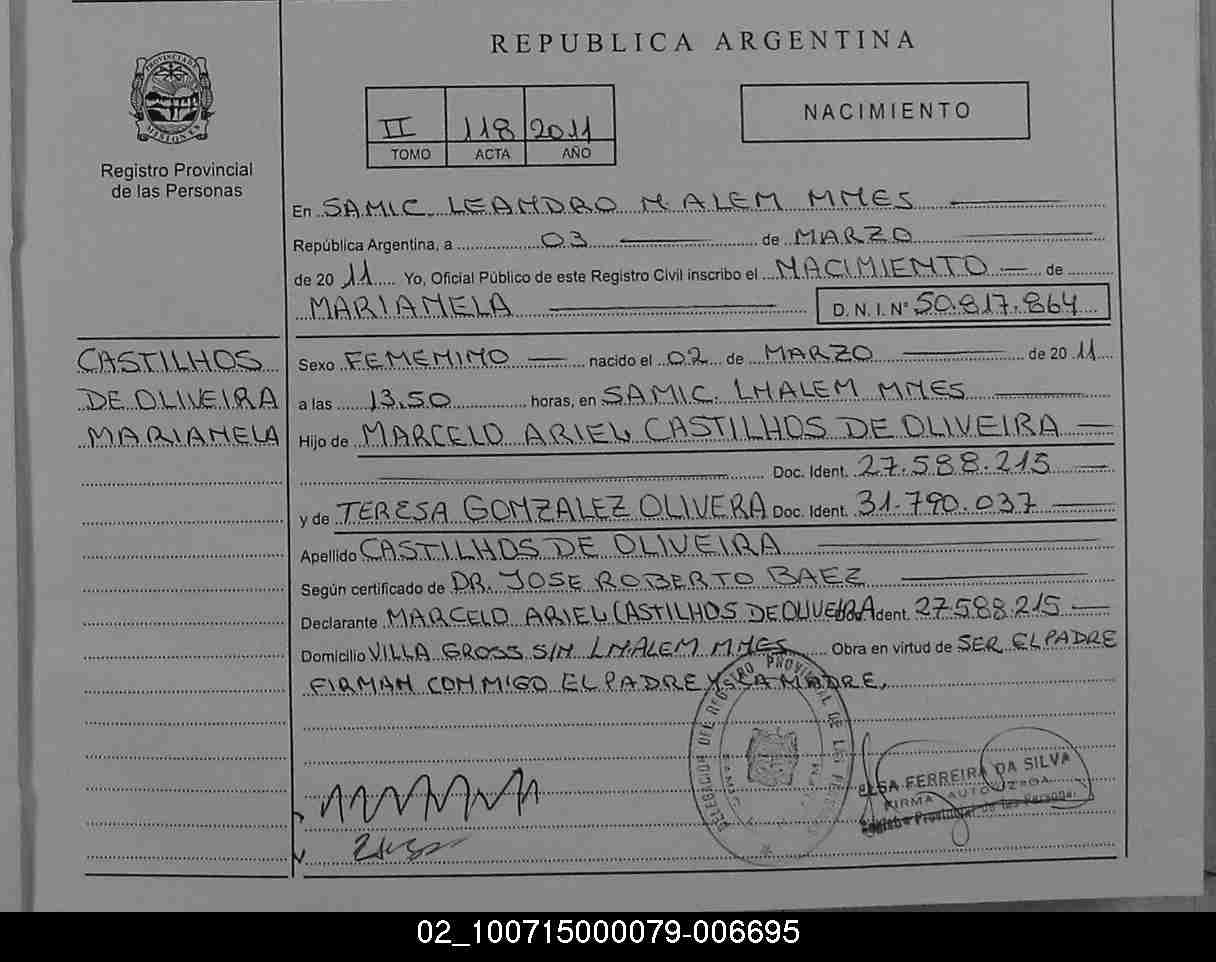 REPUBLICA ARGENTINA
PROVINCIA DE MISIONES
Registro Provincial
de las Personas
II 118 2011
TOMO ACTA AÑO
NACIMIENTO
En SAMIC LEANDRO N ALEM MNES
República Argentina, a 03 de MARZO
de 2011 Yo, Oficial Público de este Registro Civil inscribo el NACIMIENTO de
MARIANELA D.N.I. Nº 50.817.864
CASTILHOS
DE OLIVEIRA
MARIANELA
Sexo FEMENINO nacido el 02 de MARZO de 2011
a las 13.50 horas, en SAMIC LNALEM MNES
Hijo de MARCELO ARIEL CASTILHOS DE OLIVEIRA
Doc. Ident. 27.588.215
y de TERESA GONZALEZ OLIVERA Doc. Ident. 31.790.037
Apellido CASTILHOS DE OLIVEIRA
Según certificado de DR. JOSE ROBERTO BAEZ
Declarante MARCELO ARIEL CASTILHOS DE OLIVEIRA Doc. Ident. 27.588.215
Domicilio VILLA GROSS S/N LNALEM MNES Obra en virtud de SER EL PADRE
FIRMAN CONMIGO EL PADRE Y LA MADRE,
DELEGACION DEL REGISTRO PROVINCIAL DE LAS
ELSA FERREIRA DA SILVA
FIRMA AUTORIZADA
Registro Provincial de las Personas
02_100715000079-006695